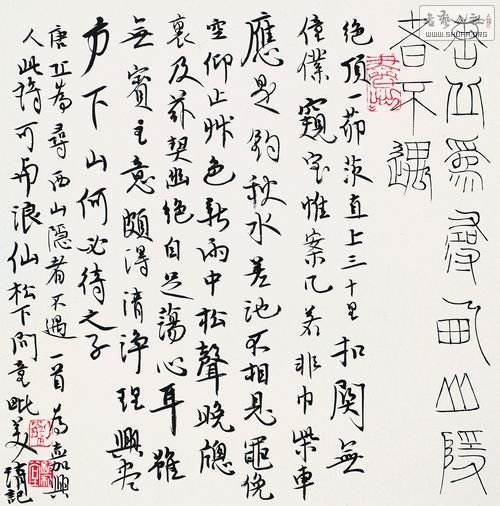 唐丘為尋西山隱
者不遇
絕頂一茆茨直上三十里扣關無
僮僕窺室惟案几若非巾柴車
應是釣秋水差池不相見黽俛
空仰止艸色新雨中松聲晚窓
裏及茲契幽絕自足蕩心耳雖
無賓主意頗得清淨理興盡
方下山何必待之子
唐丘為尋西山隱者不遇一首為嘉興
人此詩可與浪仙松下問童毗美